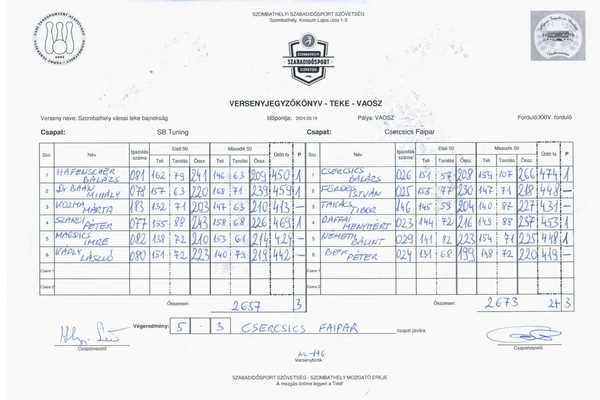 SZOMBATHELYI SZABADIDŐSPORT SZÖVETSÉG
Szombathely, Kossuth Lajos utca 1-3
SZOMBATHELYI
SZABADIDŐSPORT
SZÖVETSÉG
VERSENYJEGYZŐKÖNYV - TEKE - VAOSZ
Verseny neve: Szombathely városi teke bajnokság Időpontja: 2024.03.19 Pálya: VAOSZ Forduló:XXIV. forduló
Csapat: SB Tuning Csapat: Csercsics Faipar
Ssz. Név Igazolás száma Első 50 Második 50 Ütött fa P Ssz. Név Igazolás száma Első 50 Második 50 Ütött fa P
Teli Tarolás Össz. Teli Tarolás Össz. Teli Tarolás Össz. Teli Tarolás Össz.
1 HAFENSCHER BALÁZS 081 162 79 241 146 63 209 450 1 1 CSERCSICS BALÁZS 026 151 57 208 159 107 266 474 1
2 Dr BAÁN MIHÁLY 078 157 63 220 168 71 239 459 1 2 ISTVÁN 025 153 77 230 147 71 218 448 -
3 KOZMA MÁRTA 183 132 71 203 147 63 210 413 - 3 TAKÁCS TIBOR 146 145 59 204 140 87 227 431 -
4 PÉTER 077 155 88 243 158 68 226 469 1 4 RAFFAI MENYHÉRT 023 144 72 216 149 88 237 453 1
5 IMRE 082 138 72 210 153 61 214 424 - 5 NÉMETH BÁLINT 029 141 82 223 154 71 225 448 1
6 LÁSZLÓ 080 151 72 223 140 79 219 442 - 6 BEK PÉTER 024 131 68 199 148 72 220 419 -
Csere 1 Csere 1
Csere 2 Csere 2
Összesen: 2657 3 Összesen: 2673 2+3
Végeredmény: 5 . 3 CSERCSICS FAIPAR csapat javára
Csapatvezető Csapatvezető
Versenybírók
SZABADIDŐSPORT SZÖVETSÉG - SZOMBATHELY MOZGATÓ EREJE
A mozgás öröme legyen a Tiéd!